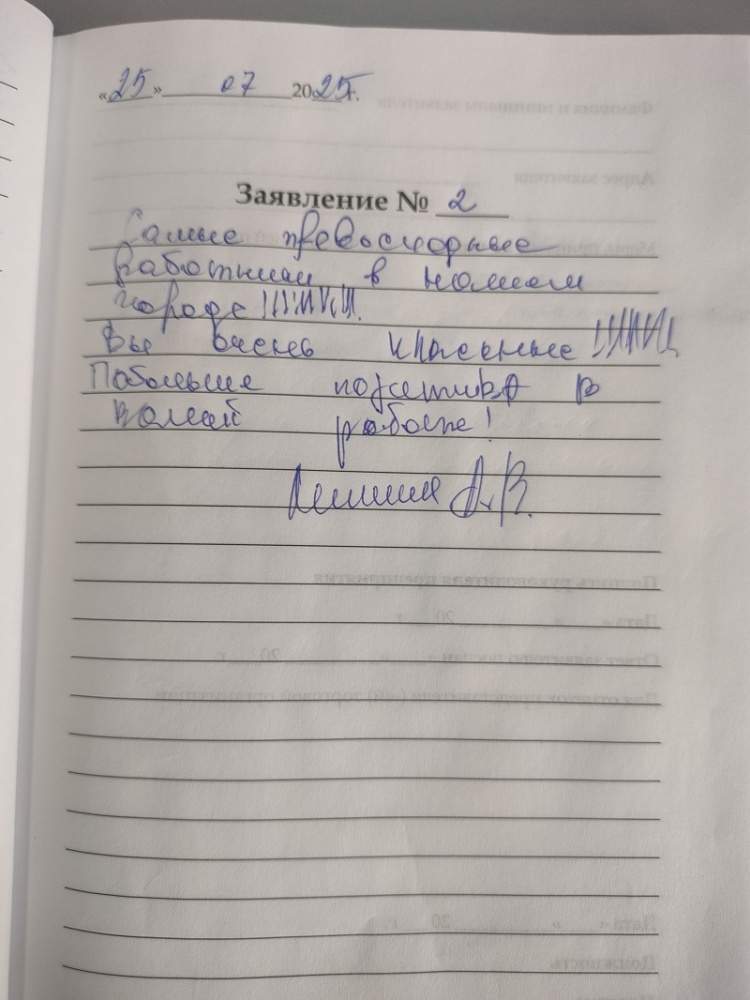 «25» 07 2025г.
Заявление № 2
Самые превосходные
работники в нашем
городе !!!!!!!!!!
Вы очень классные !!!!!!!!
Побольше позитива в
вашей работе!
А.В.